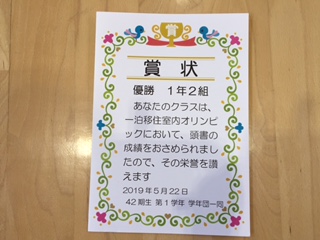 賞
賞 状
優勝 1年2組
あなたのクラスは、
一泊移住室内オリンピ
ックにおいて、頭書の
成績をおさめられまし
たので、その栄誉を讃
えます
2019年5月22日
42期生 第1学年 学年団一同